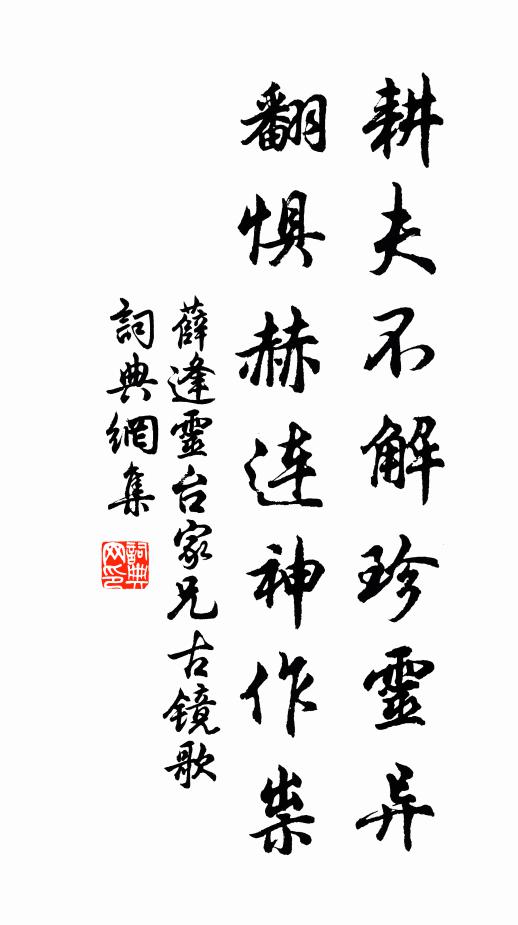 耕夫不解珍靈异
翻惧赫连神作祟
薛逢靈台家兄古镜歌
詞典網集
詞典网印